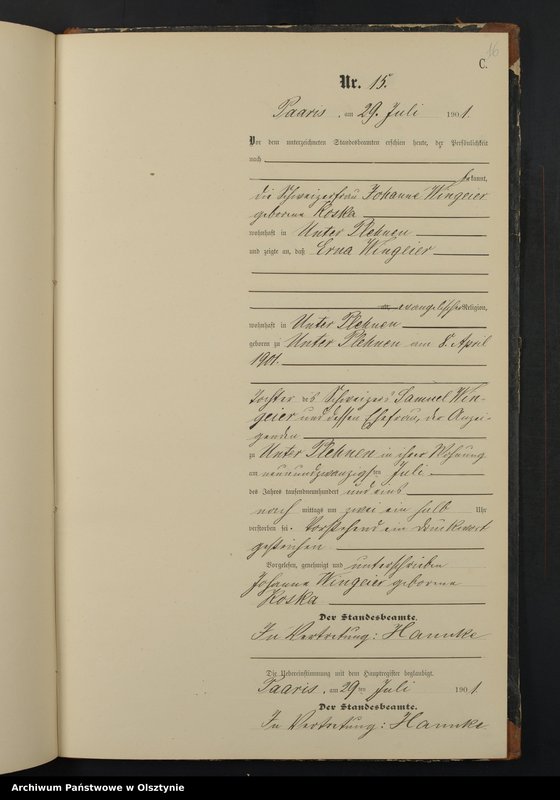 16
C.
Nr. 15.
Paaris, am 29. Juli 1901.
Vor dem unterzeichneten Standesbeamten erschien heute, der Persönlichkeit
nach
bekannt,
die Schweizerfrau Johanne Wingeier
geborene Koska
wohnhaft in Unter Plehnen
und zeigte an, daß Erna Wingeier
evangelischer Religion,
wohnhaft in Unter Plehnen
geboren zu Unter Plehnen am 8. April
1901.
Tochter des Schweizers Samuel Win-
geier und dessen Ehefrau, der Anzei-
genden
zu Unter Plehnen in ihrer Wohnung
am neunundzwanzigsten Juli
des Jahres tausendneunhundert und eins
nach mittags um zwei ein halb Uhr
verstorben sei. Vorstehend ein Druckwort
gestrichen.
Vorgelesen, genehmigt und unterschrieben
Johanne Wingeier geborene
Koska
Der Standesbeamte.
In Vertretung: Hannke
Die Uebereinstimmung mit dem Hauptregister beglaubigt.
Paaris, am 29ten Juli 1901.
Der Standesbeamte.
In Vertretung: Hannke
Archiwum Państwowe w Olsztynie